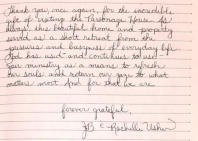 Thank you, once again, for the incredible
gift of visiting the Parsonage House. As
always, this beautiful home and property
served as a short retreat from the
pressures and busyness of everyday life
God has used and continues to use
your ministry as a means to refresh
our souls and return our gaze to what
matters most and for that we are

forever grateful,
JB & Rochelle